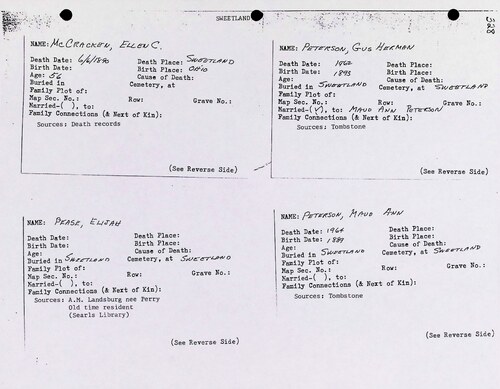 SWEETLAND
NAME: McCRACKEN, ELLEN C.
Death Date: 6/6/1890 Death Place: SWEETLAND
Birth Date: Birth Place: OHIO
Age: 56 Cause of Death:
Buried in Cemetery, at
Family Plot of:
Map Sec. No.: Row: Grave No.:
Married-( ), to:
Family Connections (& Next of Kin):
Sources: Death records
(See Reverse Side)
NAME: PETERSON, GUS HERMAN
Death Date: 1962 Death Place:
Birth Date: 1895 Birth Place:
Age: Cause of Death:
Buried in SWEETLAND Cemetery, at SWEETLAND
Family Plot of:
Map Sec. No.: Row: Grave No.:
Married-(Y), to: MAUD ANN PETERSON
Family Connections (& Next of Kin):
Sources: Tombstone
(See Reverse Side)
NAME: PEASE, ELIJAH
Death Date: Death Place:
Birth Date: Birth Place:
Age: Cause of Death:
Buried in SWEETLAND Cemetery, at SWEETLAND
Family Plot of:
Map Sec. No.: Row: Grave No.:
Married-( ), to:
Family Connections (& Next of Kin):
Sources: A.M. Landsburg nee Perry
Old time resident
(Searls Library)
(See Reverse Side)
NAME: PETERSON, MAUD ANN
Death Date: 1964 Death Place:
Birth Date: 1889 Birth Place:
Age: Cause of Death:
Buried in SWEETLAND Cemetery, at SWEETLAND
Family Plot of:
Map Sec. No.: Row: Grave No.:
Married-( ), to:
Family Connections (& Next of Kin):
Sources: Tombstone
(See Reverse Side)